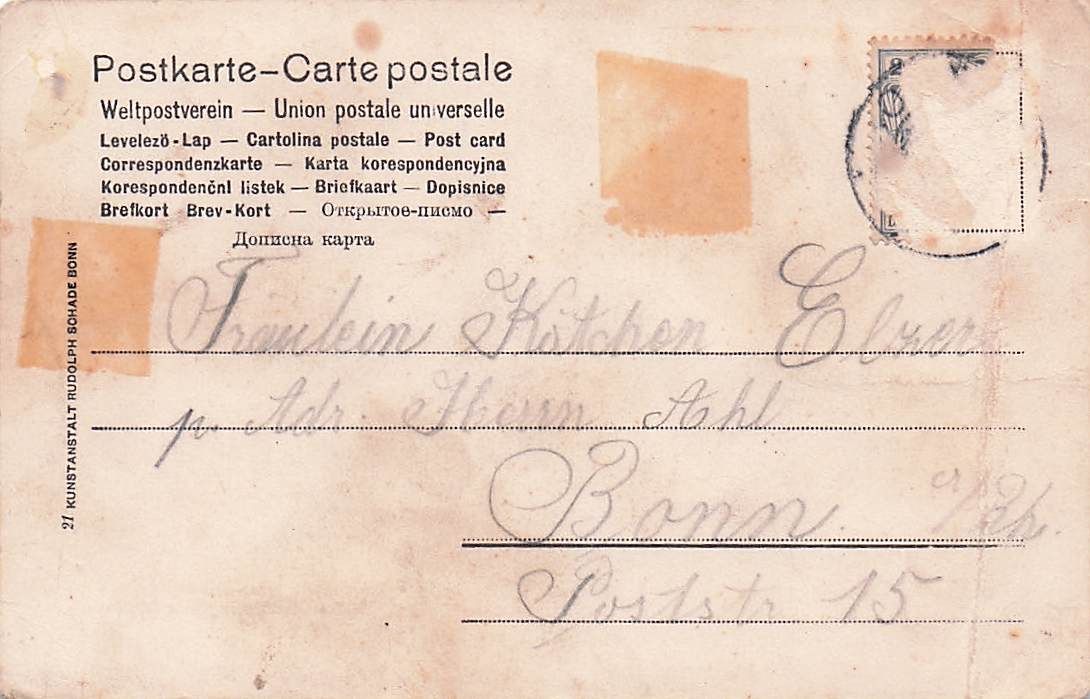 Postkarte – Carte postale
Weltpostverein — Union postale universelle
Levelezö-Lap — Cartolina postale — Post card
Correspondenzkarte — Karta korespondencyjna
Korespondenční listek — Briefkaart — Dopisnice
Brefkort Brev-Kort — Открытое-писмо —
Дописна карта
21 KUNSTANSTALT RUDOLPH SCHADE BONN
2
Fräulein Kätchen Elzer
p. Adr. Herrn Ahl
Bonn a/Rh.
Poststr 15